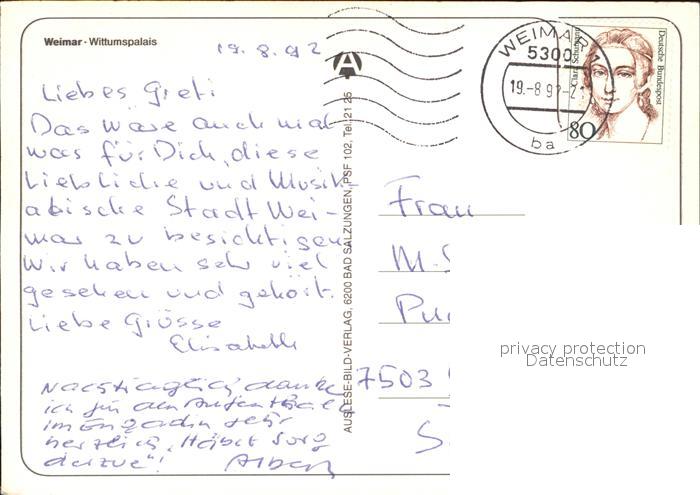 Weimar - Wittumspalais
19.8.92
Liebes Greti
Das wäre auch mal
was für Dich, diese
liebliche und Musik-
alische Stadt Wei-
mar zu besichtigen
Wir haben sehr viel
gesehen und gehört.
Liebe Grüsse
Elisabeth
Nachträglich danke
ich für den Aufenthalt
im Engadin sehr
herzlich, "Häbet Sorg
derzue"!
Albert
AUSLESE-BILD-VERLAG, 6200 BAD SALZUNGEN, PSF 102, Tel. 21 25
A
WEIMAR 1
5300
19.-8.92-21
ba
Clara Schumann
Deutsche Bundespost
80
Frau
M.
7503
privacy protection
Datenschutz